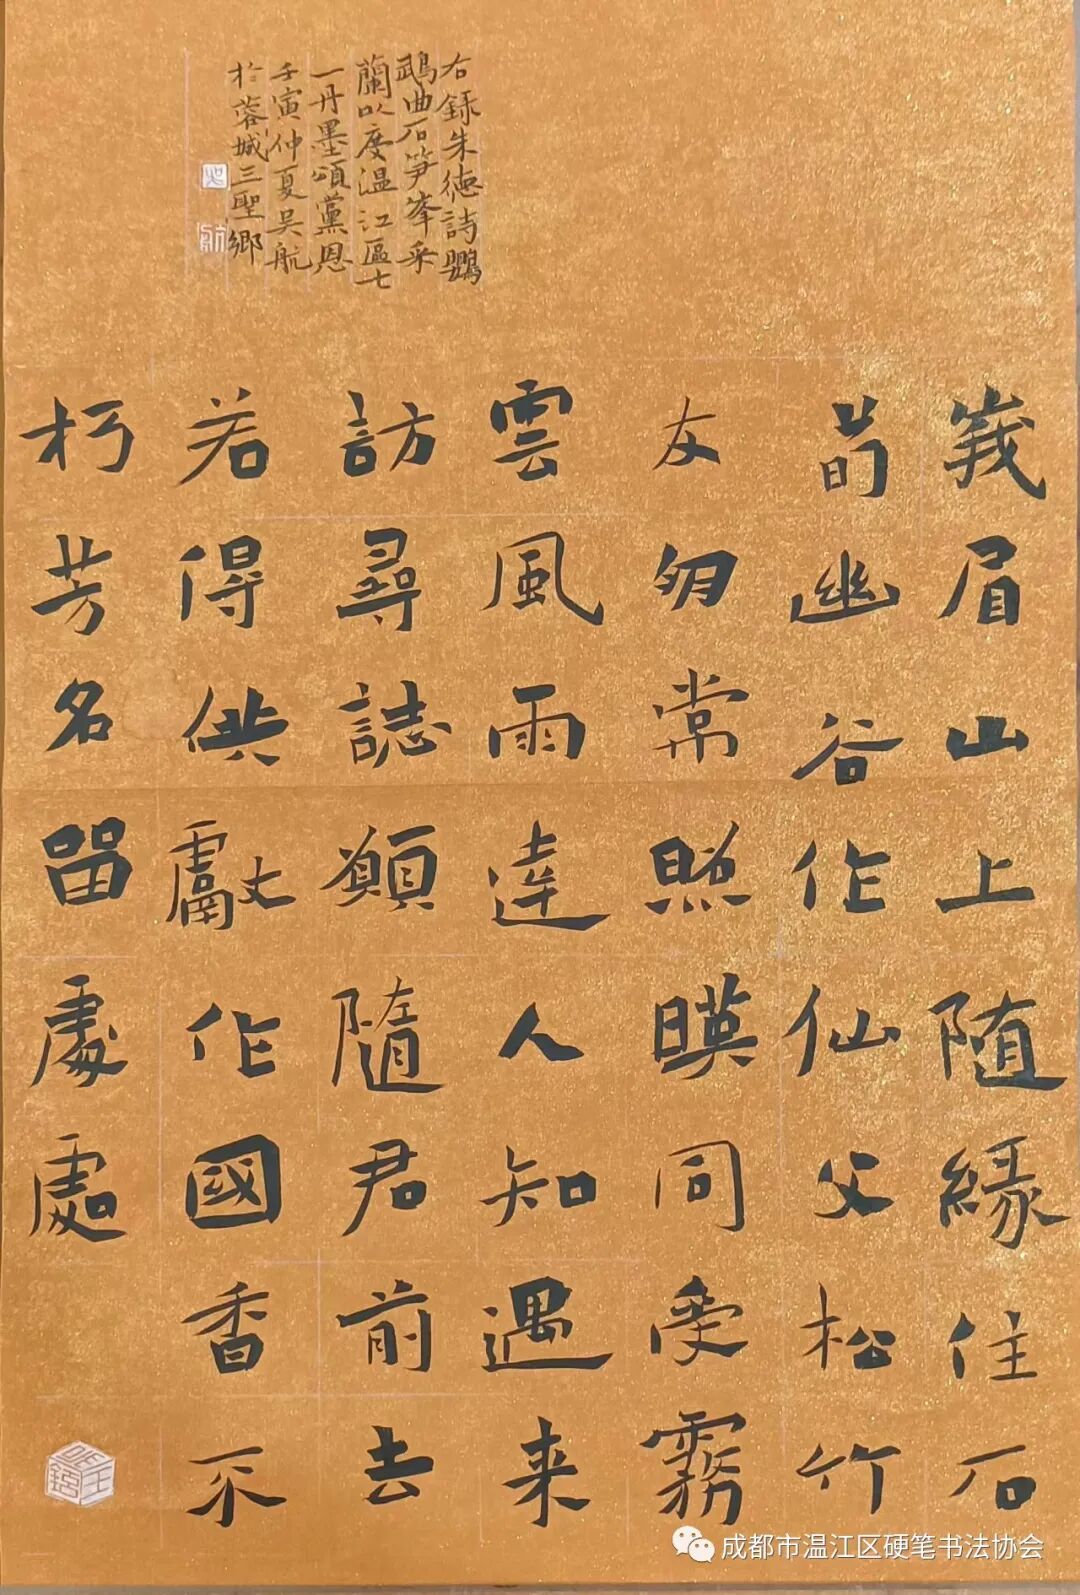 峩眉山上随緣住石
荀幽谷作仙父松竹
友勿常照暎同受霧
雲風雨達人知遇来
訪尋誌願隨君前去
若得供獻作國香不
朽芳名留處處
右録朱德詩鸚
鵡曲石笋峯采
蘭以度温江區七
一丹墨頌黨恩
壬寅仲夏吴航
於蓉城三聖鄉
成都市温江区硬笔书法协会